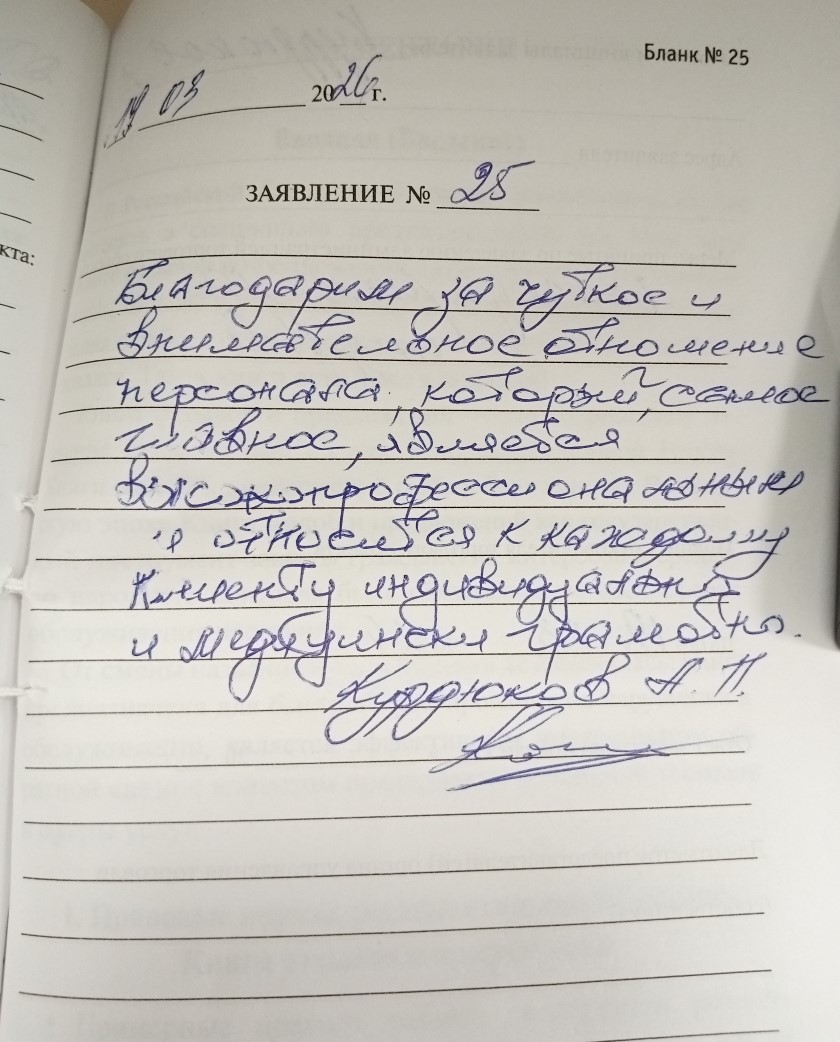 Бланк № 25
19 03 2026 г.
ЗАЯВЛЕНИЕ № 25
кта:
Благодарим за чуткое и
внимательное отношение
персонала, который, самое
главное, является
высокопрофессиональным
и относится к каждому
клиенту индивидуально
и медицински грамотно.
Курдюков А. П.